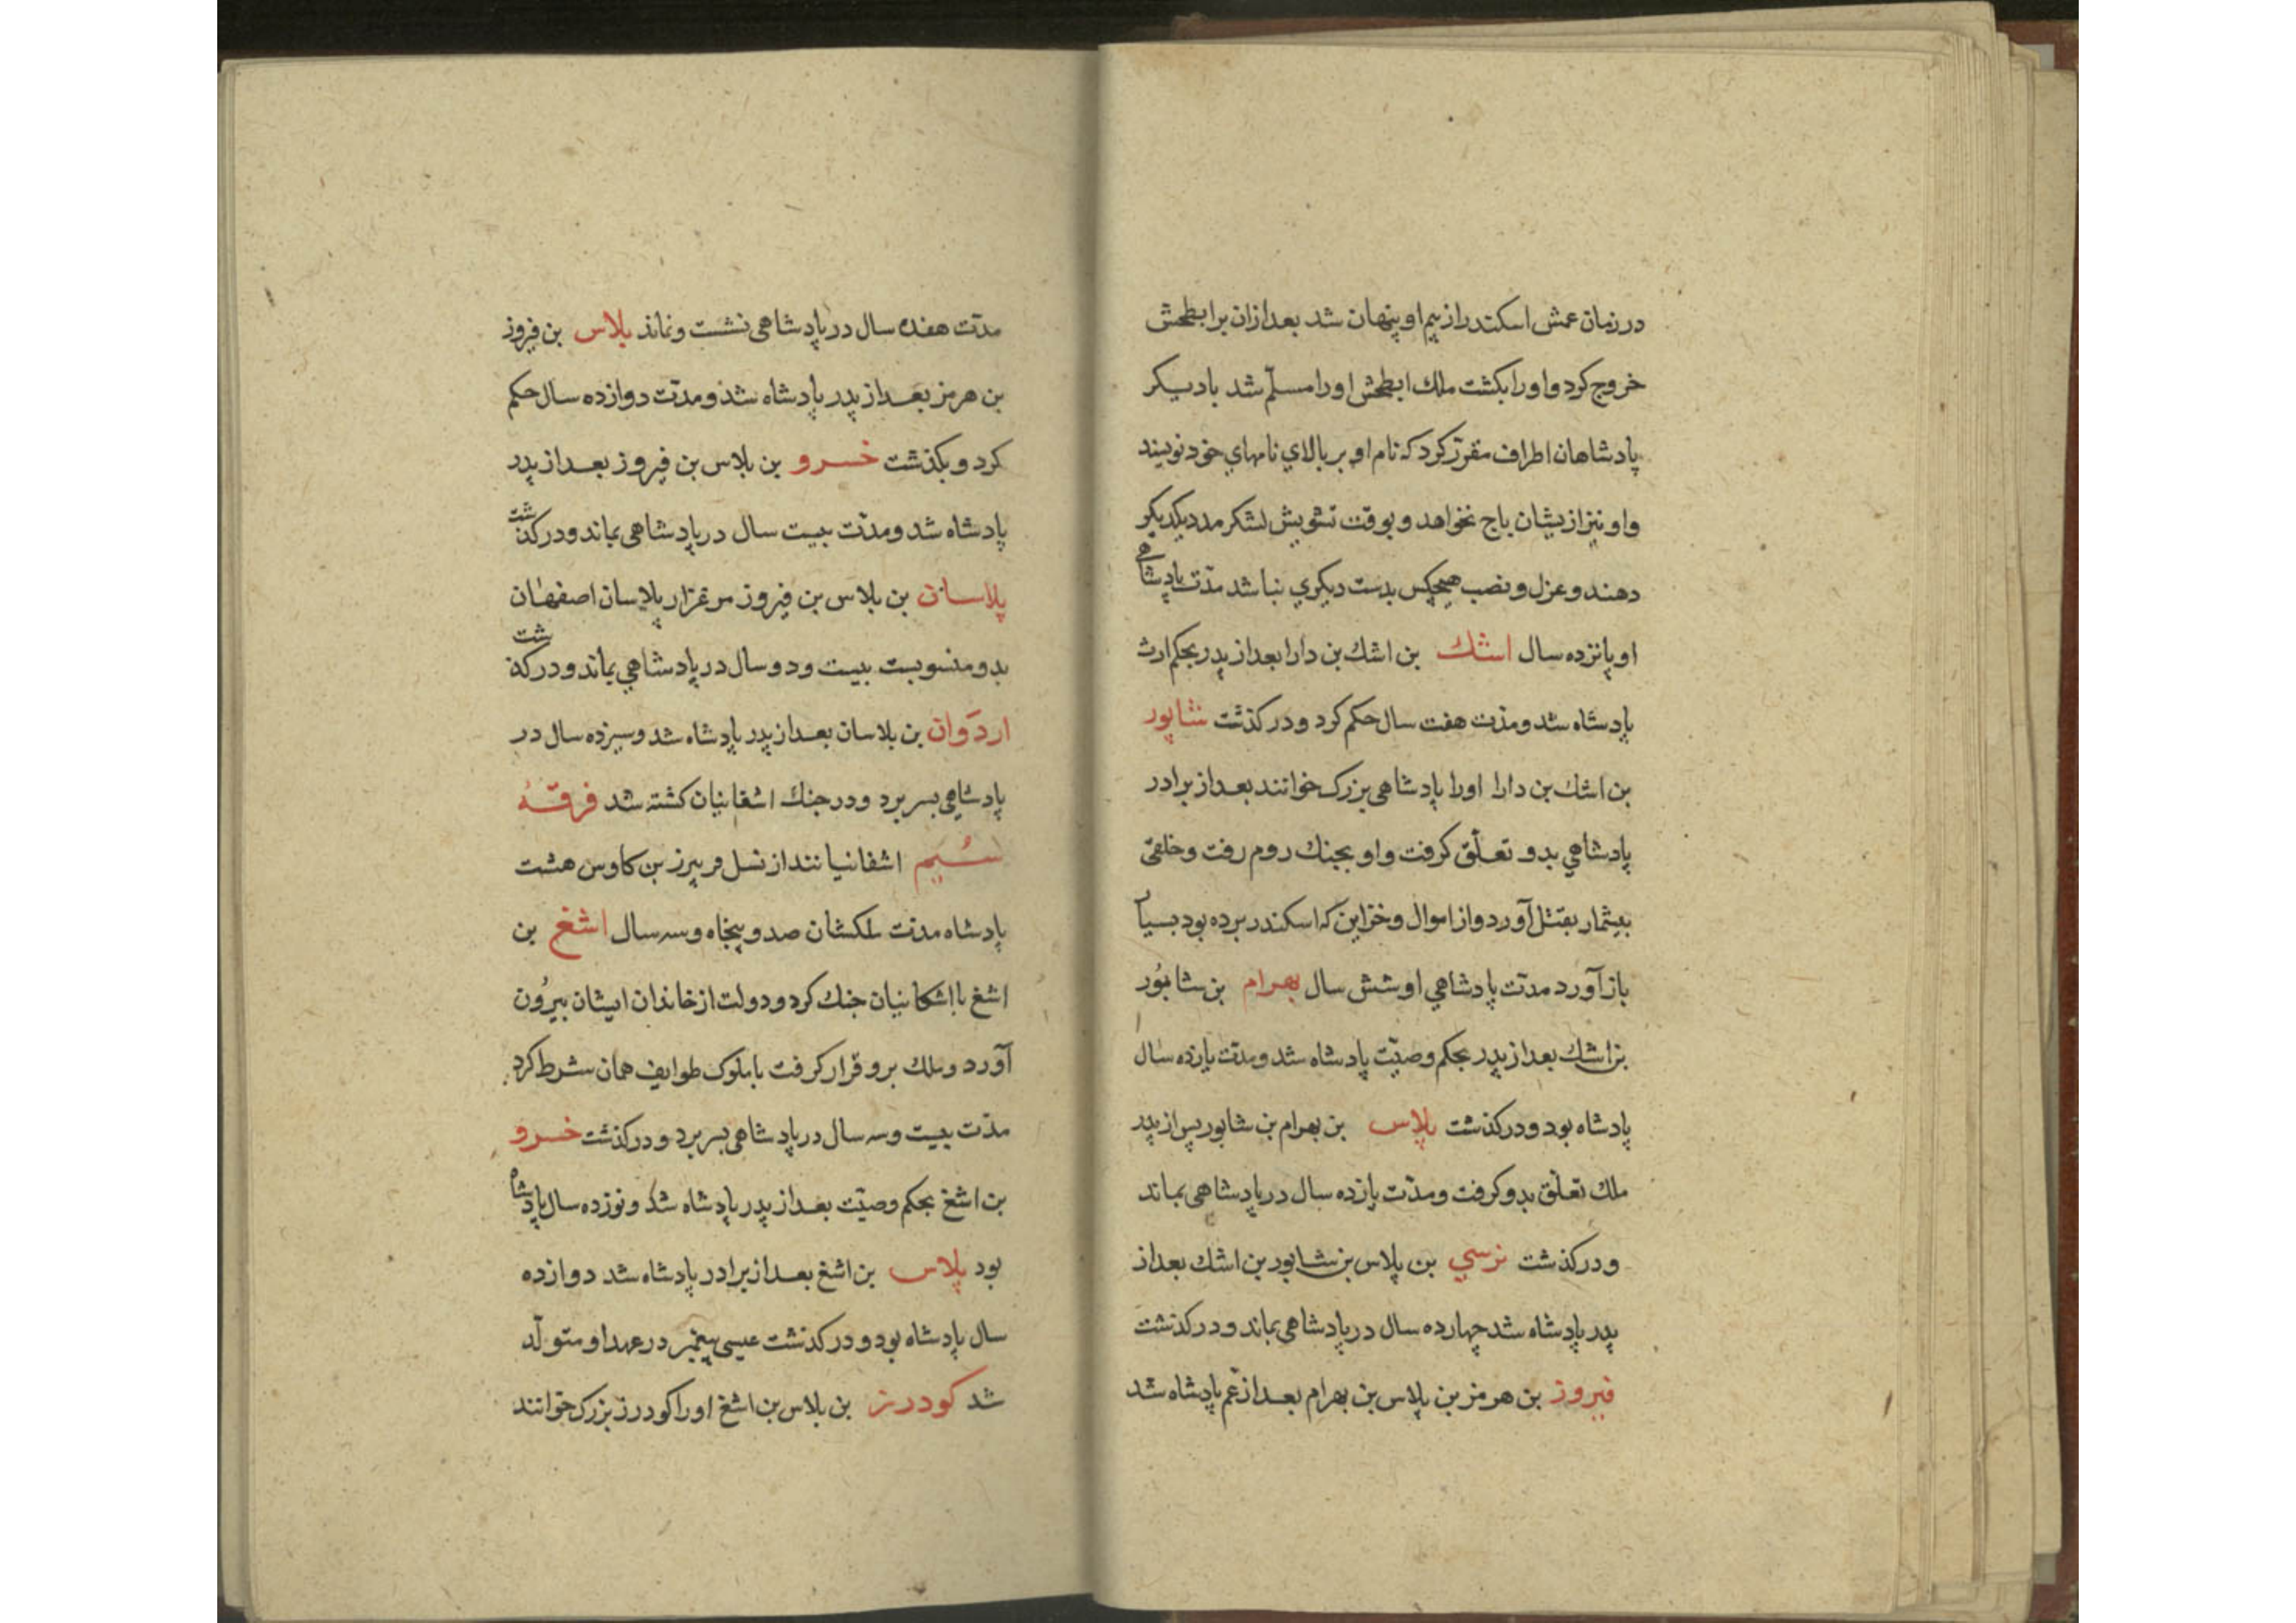 در زمان عمش اسکندر از بیم او پنهان شد بعد ازان بر ابطحش
خروج کرد و اورا بکشت ملك ابطحش اورا مسلّم شد با دیکر
پادشاهان اطراف مقرّر کرد که نام او بر بالاي نامهاي خود نویسند
و او نیز ازیشان باج نخواهد و بوقت تشویش لشکر مدد یکدیکر
دهند و عزل و نصب هیچکس بدست دیکري نباشد مدّت پادشاهی
او پانزده سال اشك بن اشك بن دارا بعد از پدر بحکم ارث
پادشاه شد و مدّت هفت سال حکم کرد و درکذشت شاپور
بن اشك بن دارا اورا پادشاهی بزرک خوانند بعد از برادر
پادشاهي بدو تعلّق کرفت و او بجنك روم رفت و خلقی
بیشمار بقتل آورد و از اموال و خزاین که اسکندر برده بود بسیار
باز آورد مدّت پادشاهي او شش سال بهرام بن شاپُور
بن اشك بعد از پدر بحکم وصیّت پادشاه شد و مدّت یازده سال
پادشاه بود و درکذشت پلاس بن بهرام بن شاپور پس از پدر
ملك تعلّق بدو کرفت و مدّت یازده سال در پادشاهی بماند
و درکذشت نرسي بن پلاس بن شاپور بن اشك بعد از
پدر پادشاه شد چهارده سال در پادشاهی بماند و درکذشت
فیروز بن هرمز بن پلاس بن بهرام بعد از عم پادشاه شد
مدّت هفده سال در پادشاهی نشست و نماند پلاس بن فیروز
بن هرمز بعد از پدر پادشاه شذ و مدّت دوازده سال حکم
کرد و بکذشت خسرو بن پلاس بن فیروز بعد از پدر
پادشاه شد و مدّت بیست سال در پادشاهی بماند و درکذشت
پلاسان بن پلاس بن فیروز مرغزار پلاسان اصفهان
بدو منسوبست بیست و دو سال در پادشاهي بماند و درکذشت
اردَوان بن بلاسان بعد از پدر پادشاه شد و سیزده سال در
پادشاهي بسر برد و در جنك اشغانیان کشته شد فرقهٔ
سُیم اشغانیانند از نسل فریبرز بن کاوس هشت
پادشاه مدّت ملکشان صد و پنجاه و سه سال اشغ بن
اشغ با اشکانیان جنك کرد و دولت از خاندان ایشان بیرُون
آورد و ملك برو قرار کرفت با ملوک طوایف همان شرط کرد
مدّت بیست و سه سال در پادشاهی بسر برد و درکذشت خسرو
بن اشغ بحکم وصیّت بعد از پدر پادشاه شد و نوزده سال پادشاه
بود پلاس بن اشغ بعد از برادر پادشاه شد دوازده
سال پادشاه بود و درکذشت عیسی پیغمبر در عهد او متولّد
شد کودرز بن پلاس بن اشغ اورا کودرز بزرک خوانند